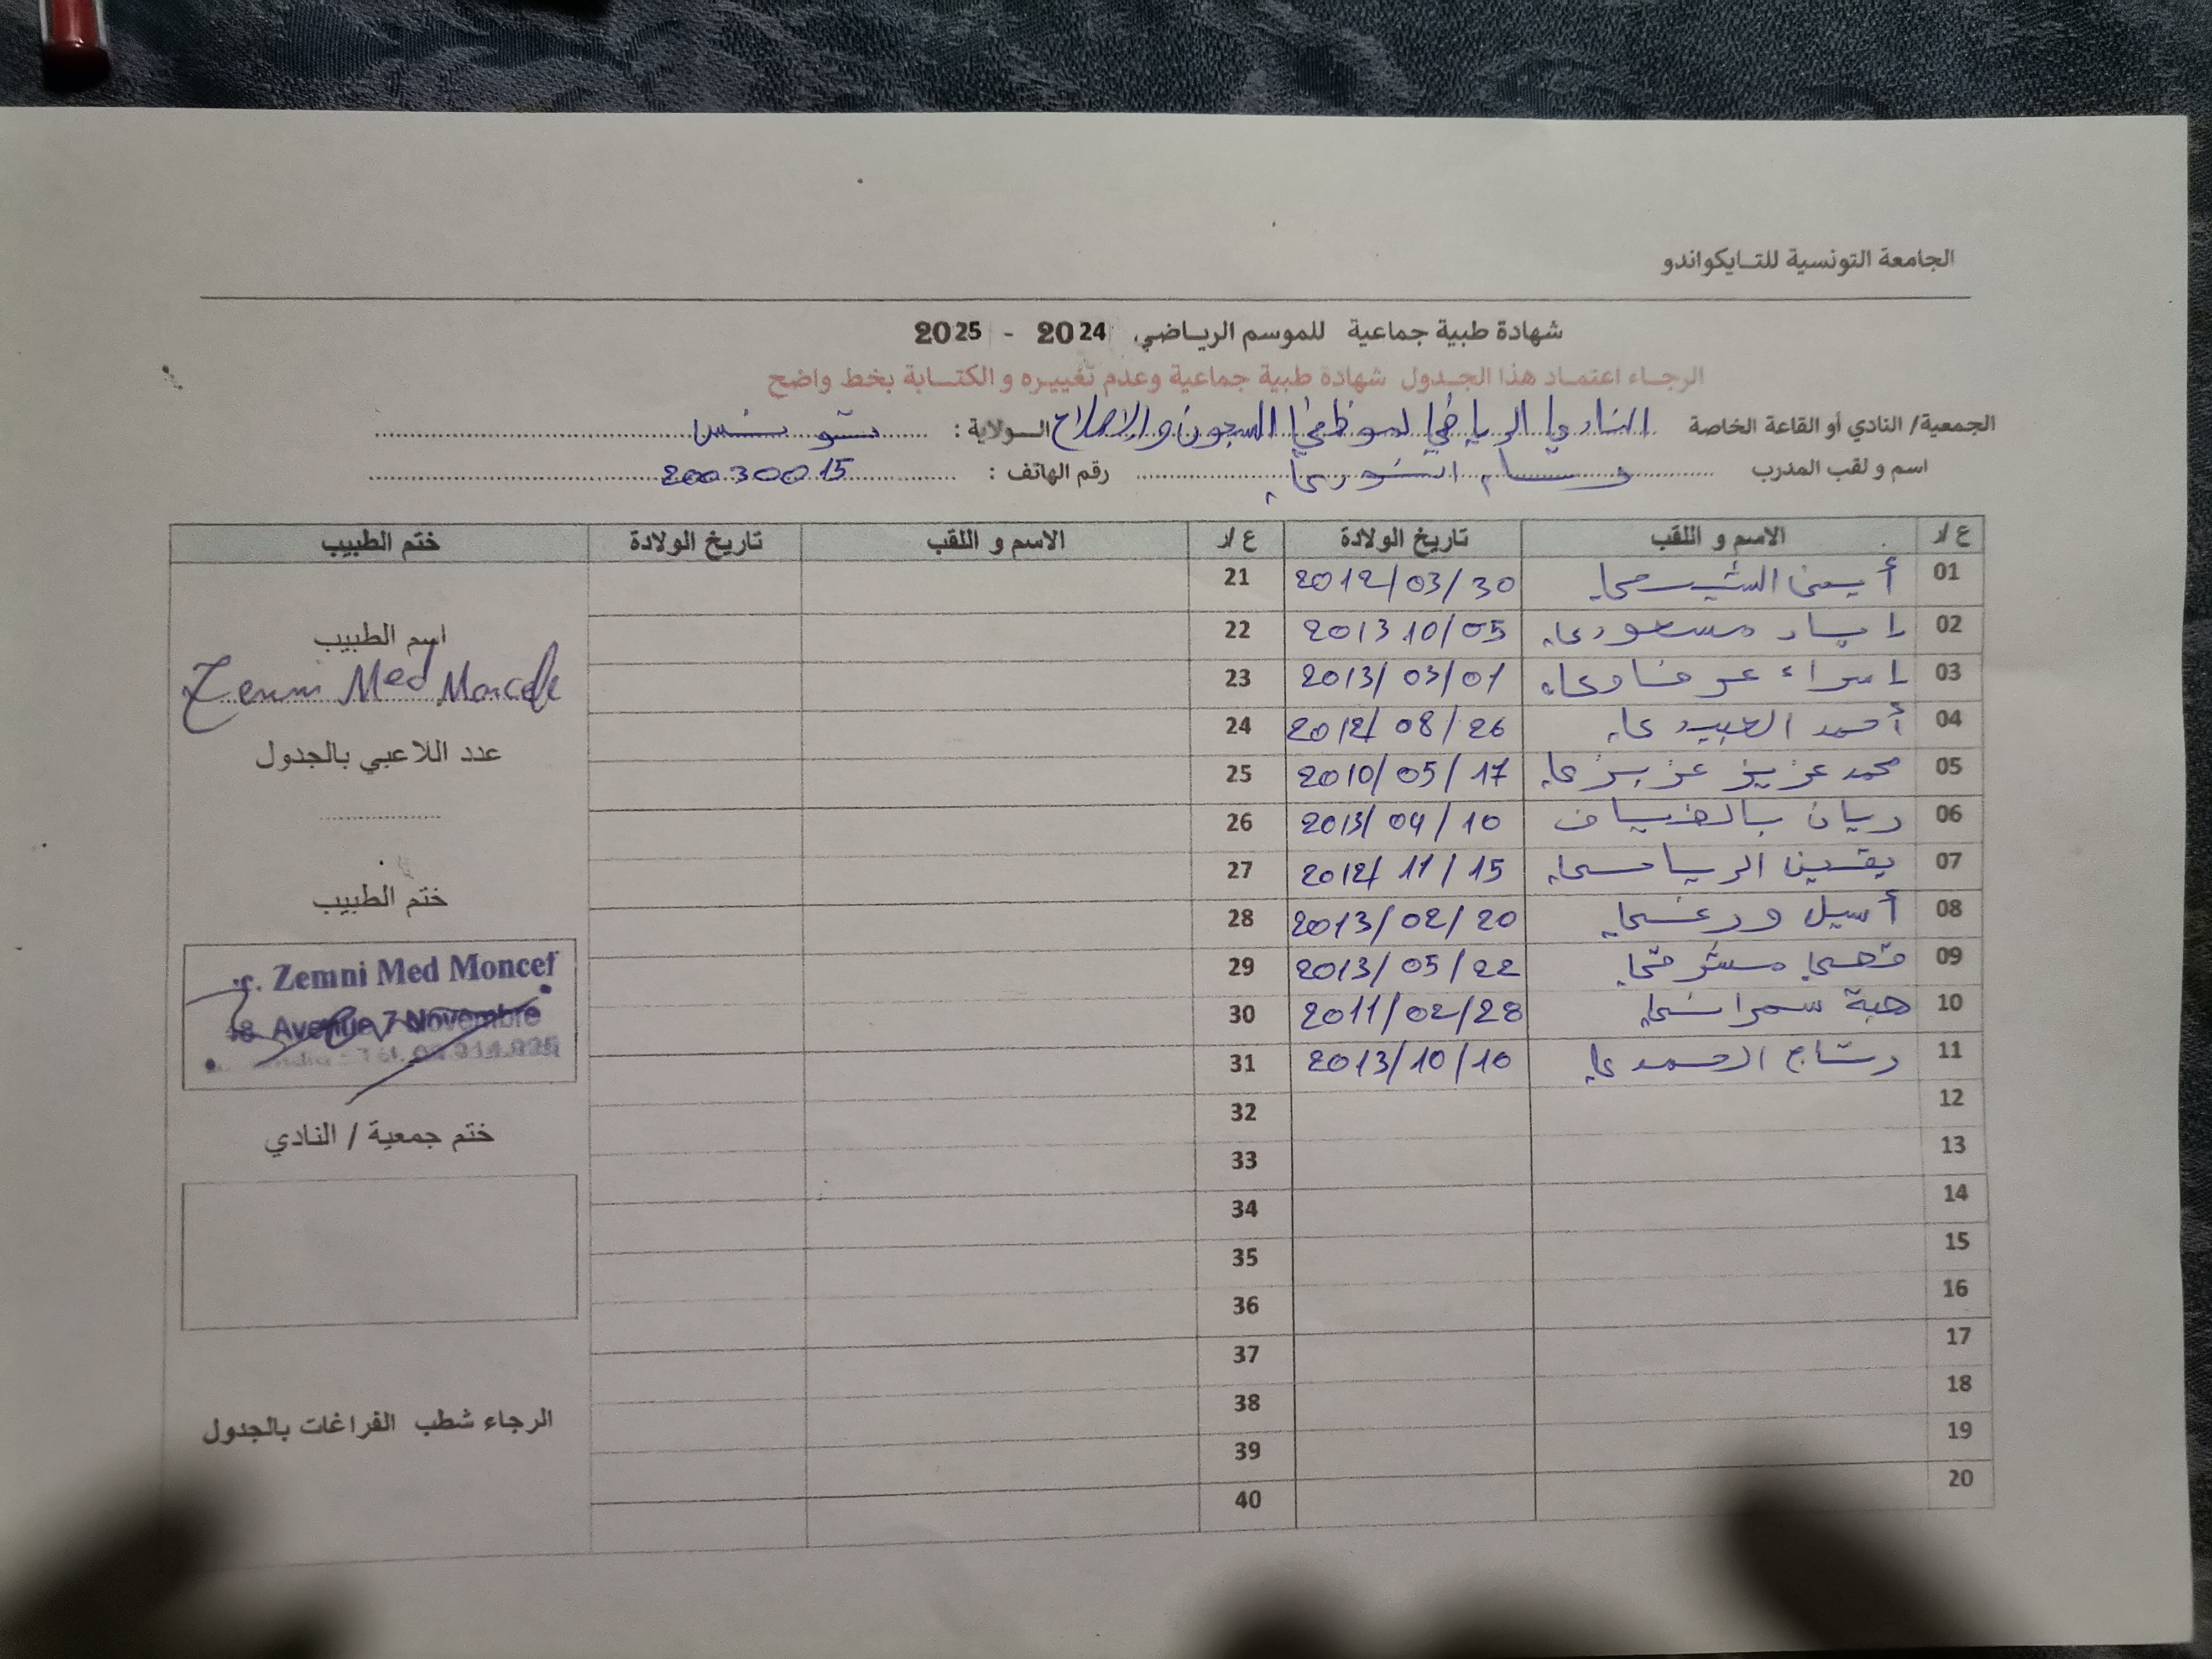 الجامعة التونسية للتـايكواندو
شهادة طبية جماعية للموسم الرياضي 2024 - 2025
الرجـاء اعتمـاد هذا الجـدول شهادة طبية جماعية وعدم تغييـره و الكتـابة بخط واضح
الجمعية/ النادي أو القاعة الخاصة النادي الرياضي لموظفي السجون والإصلاح الـولاية : تونس
اسم و لقب المدرب وسام رقم الهاتف : 20030015
ع/ر الاسم و اللقب تاريخ الولادة ع/ر الاسم و اللقب تاريخ الولادة ختم الطبيب
01 2012/03/30 21
02 اياد مسعودي 2013 10/05 22
03 اسراء عرفاوي 2013/03/01 23
04 أحمد العبيدي 2012/08/26 24
05 محمد عزيز عزيزي 2010/05/17 25
06 ريان بالضياف 2013/04/10 26
07 يقين الرياحي 2012/11/15 27
08 أسيل ورغي 2013/02/20 28
09 مشرقي 2013/05/22 29
10 هبة سمراني 2011/02/28 30
11 رتاج الحمدي 2013/10/10 31
12 32
13 33
14 34
15 35
16 36
17 37
18 38
19 39
20 40
اسم الطبيب
Zemni Med Moncef
عدد اللاعبي بالجدول
ختم الطبيب
Zemni Med Moncef
Avenue 7 Novembre
ختم جمعية / النادي
الرجاء شطب الفراغات بالجدول